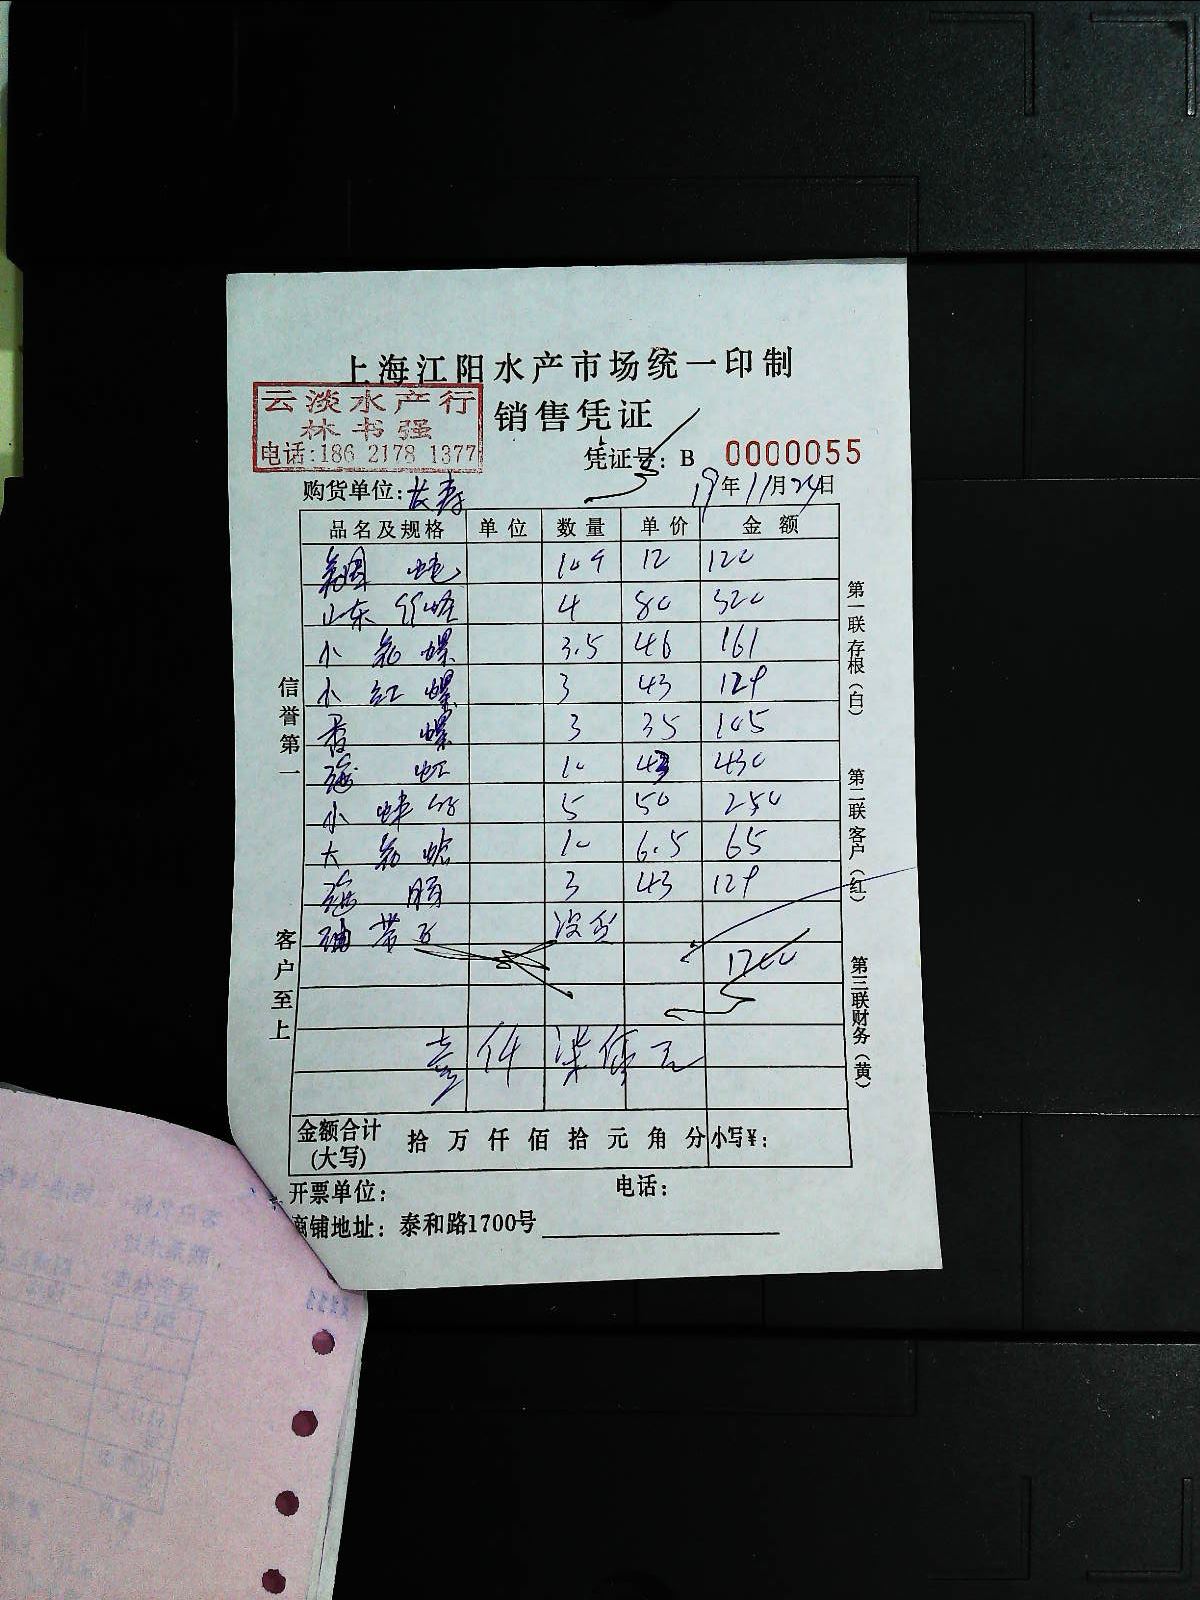 上海江阳水产市场统一印制
云淡水产行
林书强
电话:186 2178 1377
销售凭证
凭证号: B 0000055
购货单位:长寿 19年11月24日
品名及规格 单位 数量 单价 金额
12 120
山东 4 80 320
小花螺 3.5 46 161
小红螺 3 43 129
香螺 3 35 105
海虹 10 43 430
小 5 50 250
大花蛤 10 6.5 65
海肠 3 43 129
带子 没货
1700
壹仟柒佰元
金额合计(大写) 拾万仟佰拾元角分 小写¥:
开票单位: 电话:
商铺地址: 泰和路1700号
信誉第一
客户至上
第一联 存根(白)
第二联 客户(红)
第三联 财务(黄)